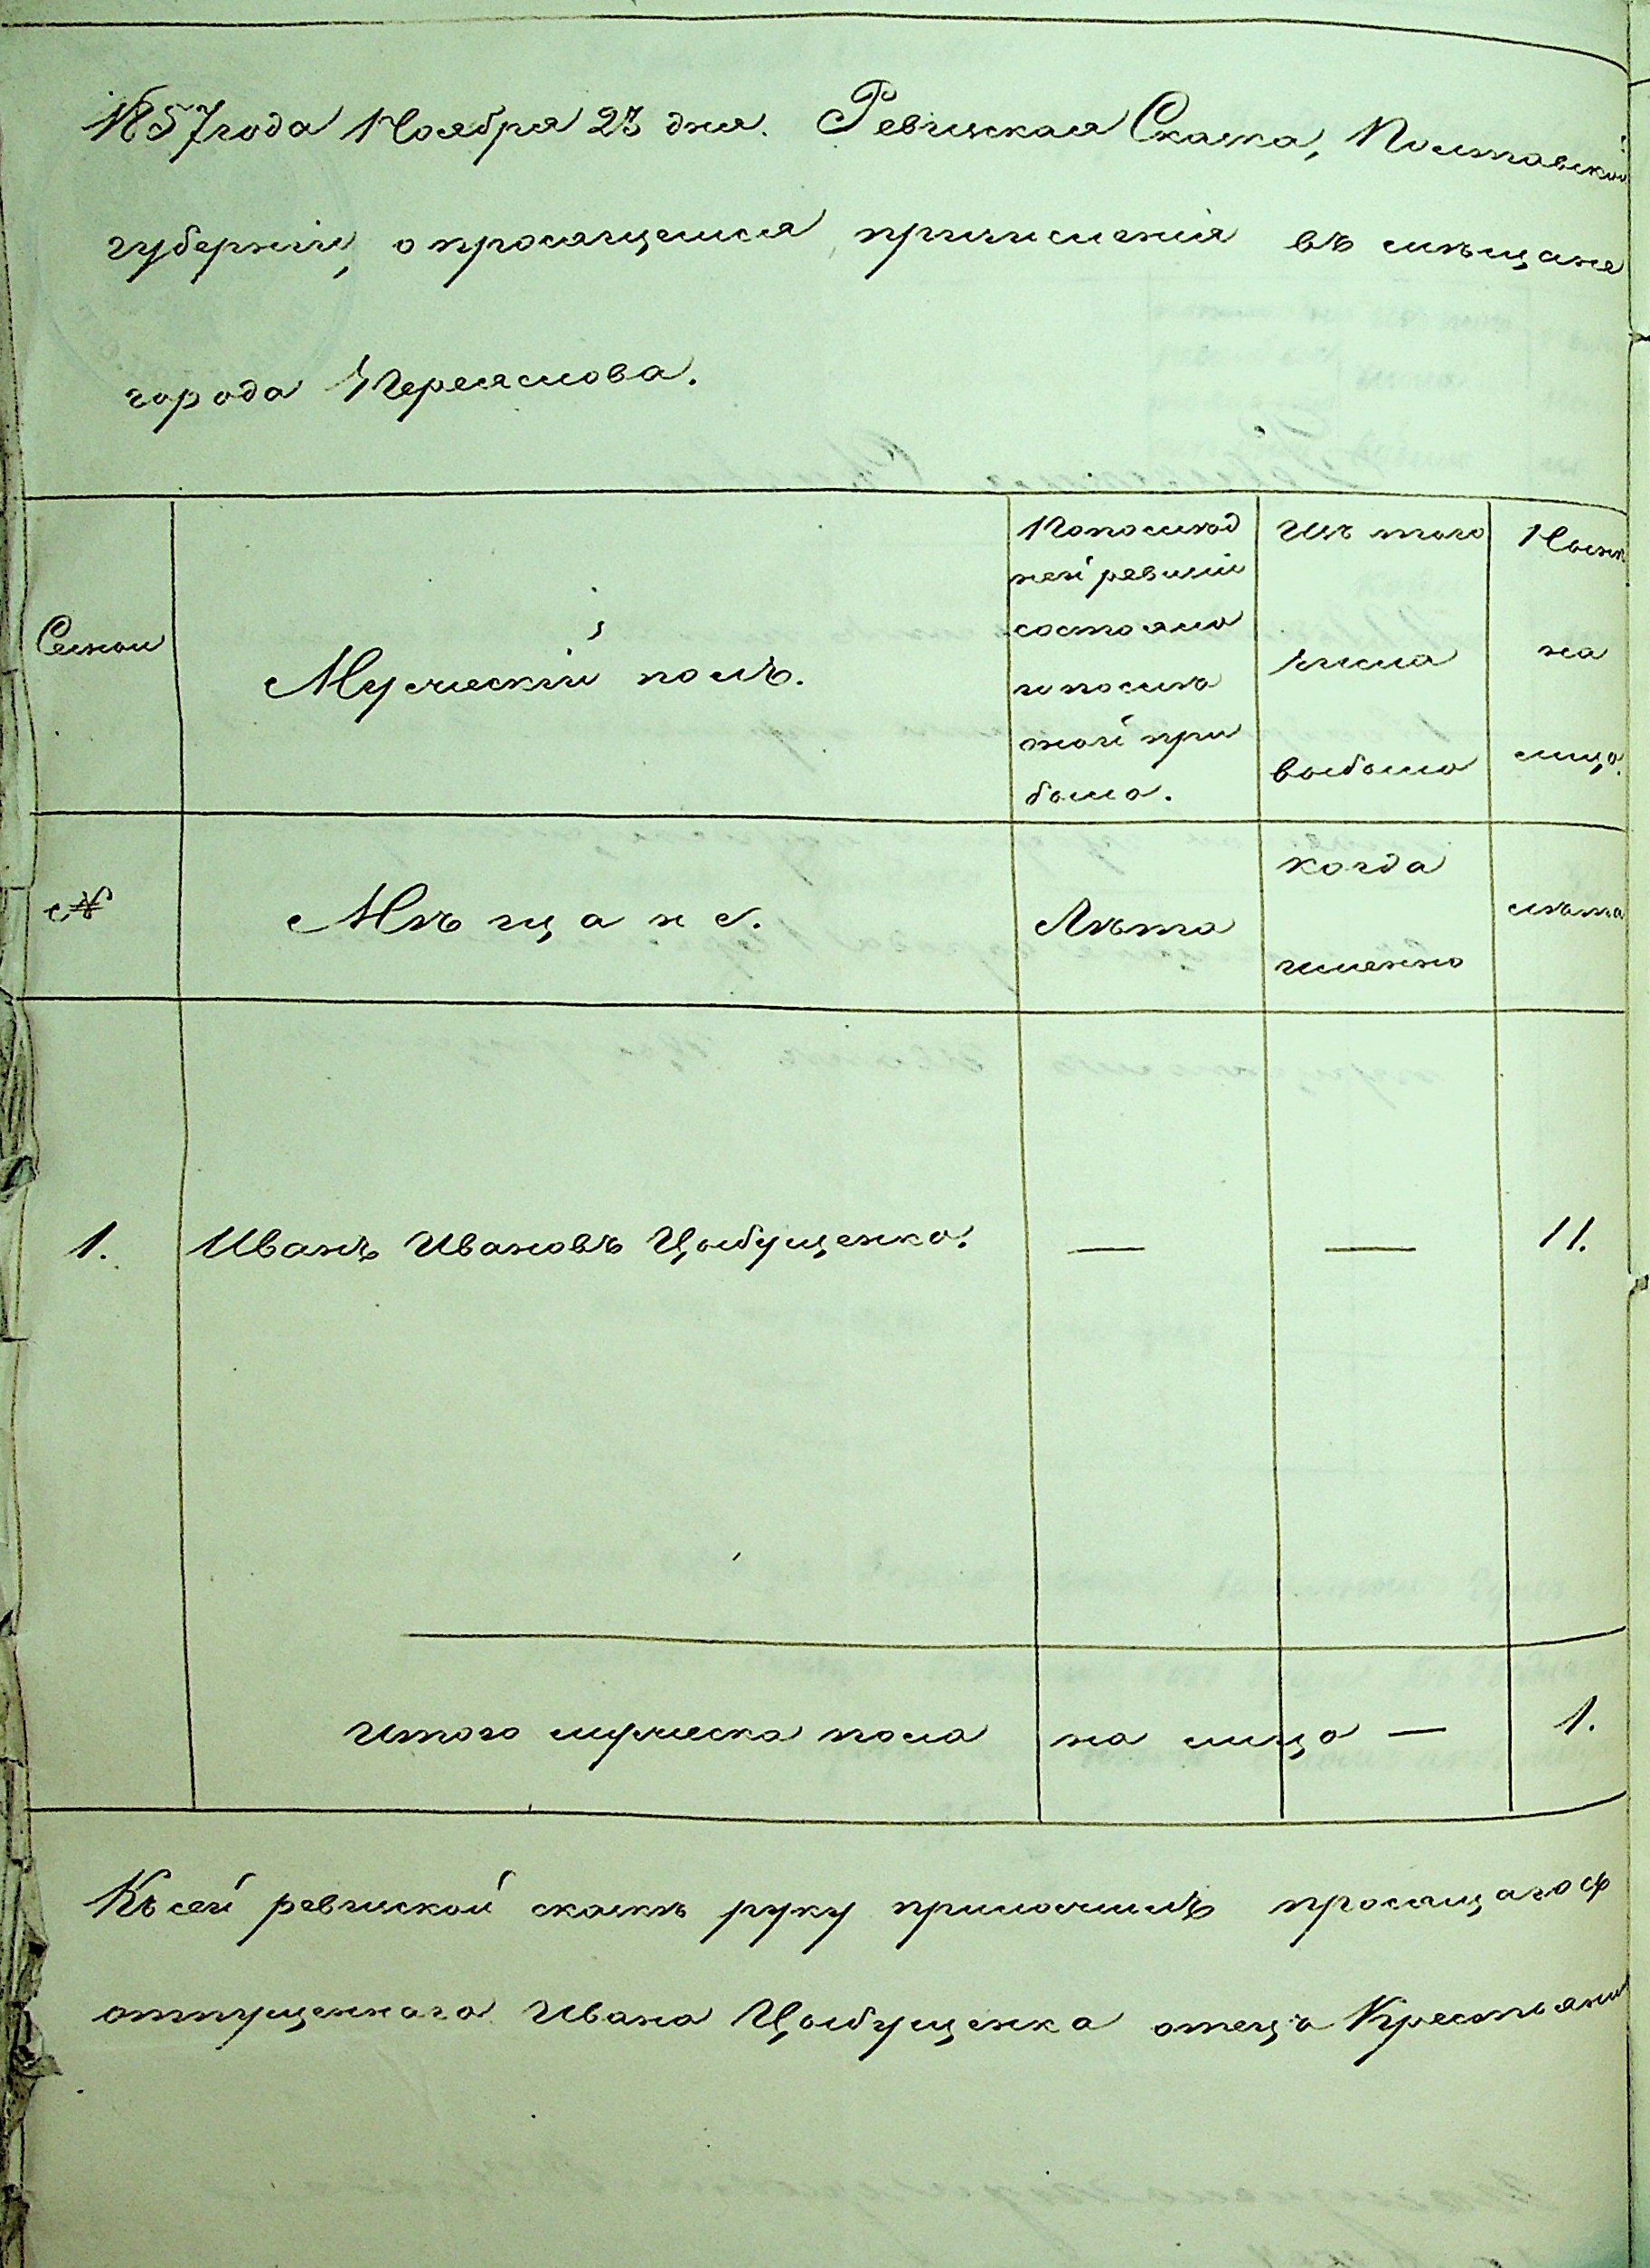 1857 года Ноября 23 дня. Ревизкая Скаска, Полтавской
губерніи, о просящемся причисленія въ мѣщане
города Переяслова.
Семьи
Мужескій полъ.
По послѣд
ней ревизіи
состояло
и послѣ
оной при
было.
Изъ того
числа
выбыло
Нынѣ
на
лицо.
№
Мѣщане.
Лѣта
когда
именно
лѣта
1. Иванъ Ивановъ Цыбущенко. — — 11.
Итого мужеска пола на лицо — 1.
Къ сей ревиской скаскѣ руку приложилъ просящагося
отпущеннаго Ивана Цыбущенка отецъ Крестьянин